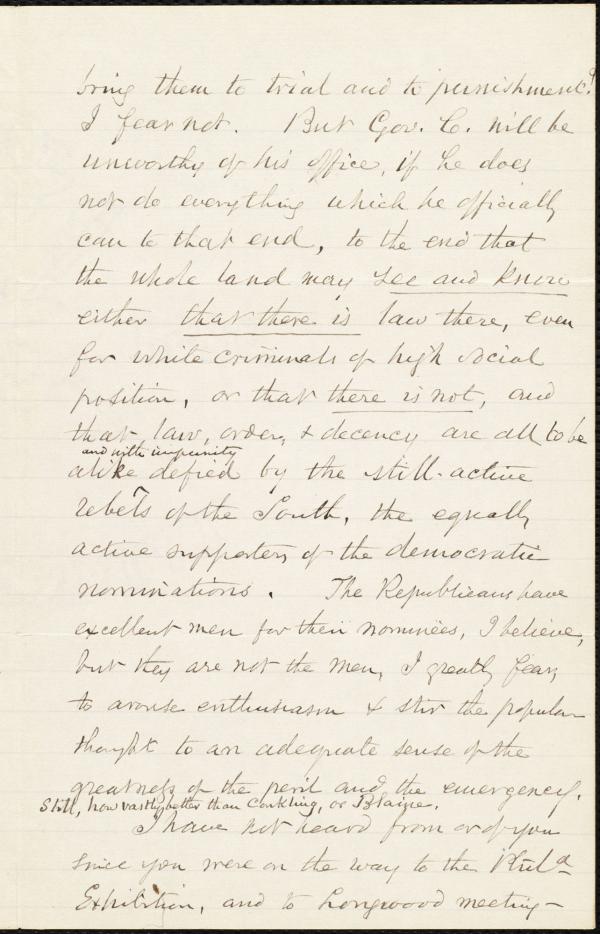 bring them to trial and to punishment?
I fear not. But Gov. C. will be
unworthy of his office, if he does
not do everything which he officially
can to that end, to the end that
the whole land may see and know
either that there is law there, even
for white criminals of high social
position, or that there is not, and
that law, order, & decency are all to be
and with impunity
alike defied by the still-active
rebels of the South, the equally
active supporters of the democratic
nominations. The Republicans have
excellent men for their nominees, I believe,
but they are not the men, I greatly fear,
to arouse enthusiasm & stir the popular
thought to an adequate sense of the
greatness of the peril and the emergency.
Still, how vastly better than Conkling, or Blaine.
I have not heard from or of you
since you were on the way to the Phila
Exhibition, and to Longwood meeting—